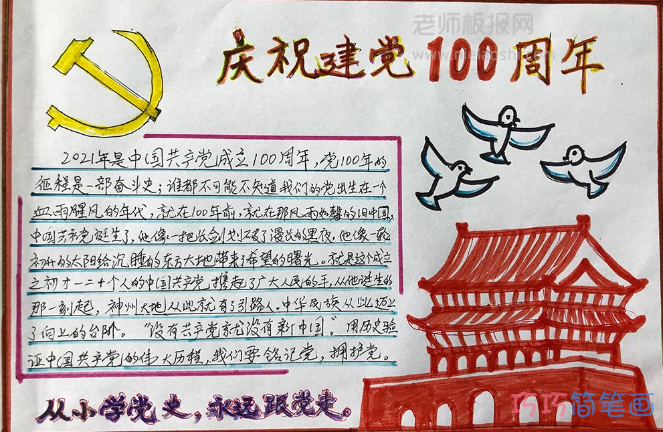 老师板报网
庆祝建党100周年
2021年是中国共产党成立100周年,党100年的
征程是一部奋斗史;谁都不可能不知道我们的党出生在一个
血雨腥风的年代,就在100年前,就在那风雨如磐的旧中国,
中国共产党诞生了,他像一把长剑划破了漫长的黑夜,他像一轮
初升的太阳给沉睡的东方大地带来了希望的曙光。就是这个成立
之初才一二十个人的中国共产党,携起了广大人民的手,从他诞生的
那一刻起,神州大地从此就有了引路人。中华民族从此迈上
了向上的台阶。“没有共产党就没有新中国”,用历史验
证中国共产党的伟大历程,我们要铭记党,拥护党。
从小学党史,永远跟党走。
巧巧简笔画